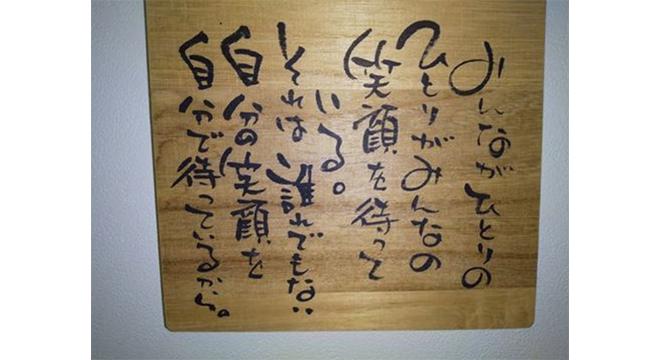 みんながひとりの
ひとりがみんなの
笑顔を待って
いる。
それは誰れでもない
自分の笑顔を
自分で待っているから。